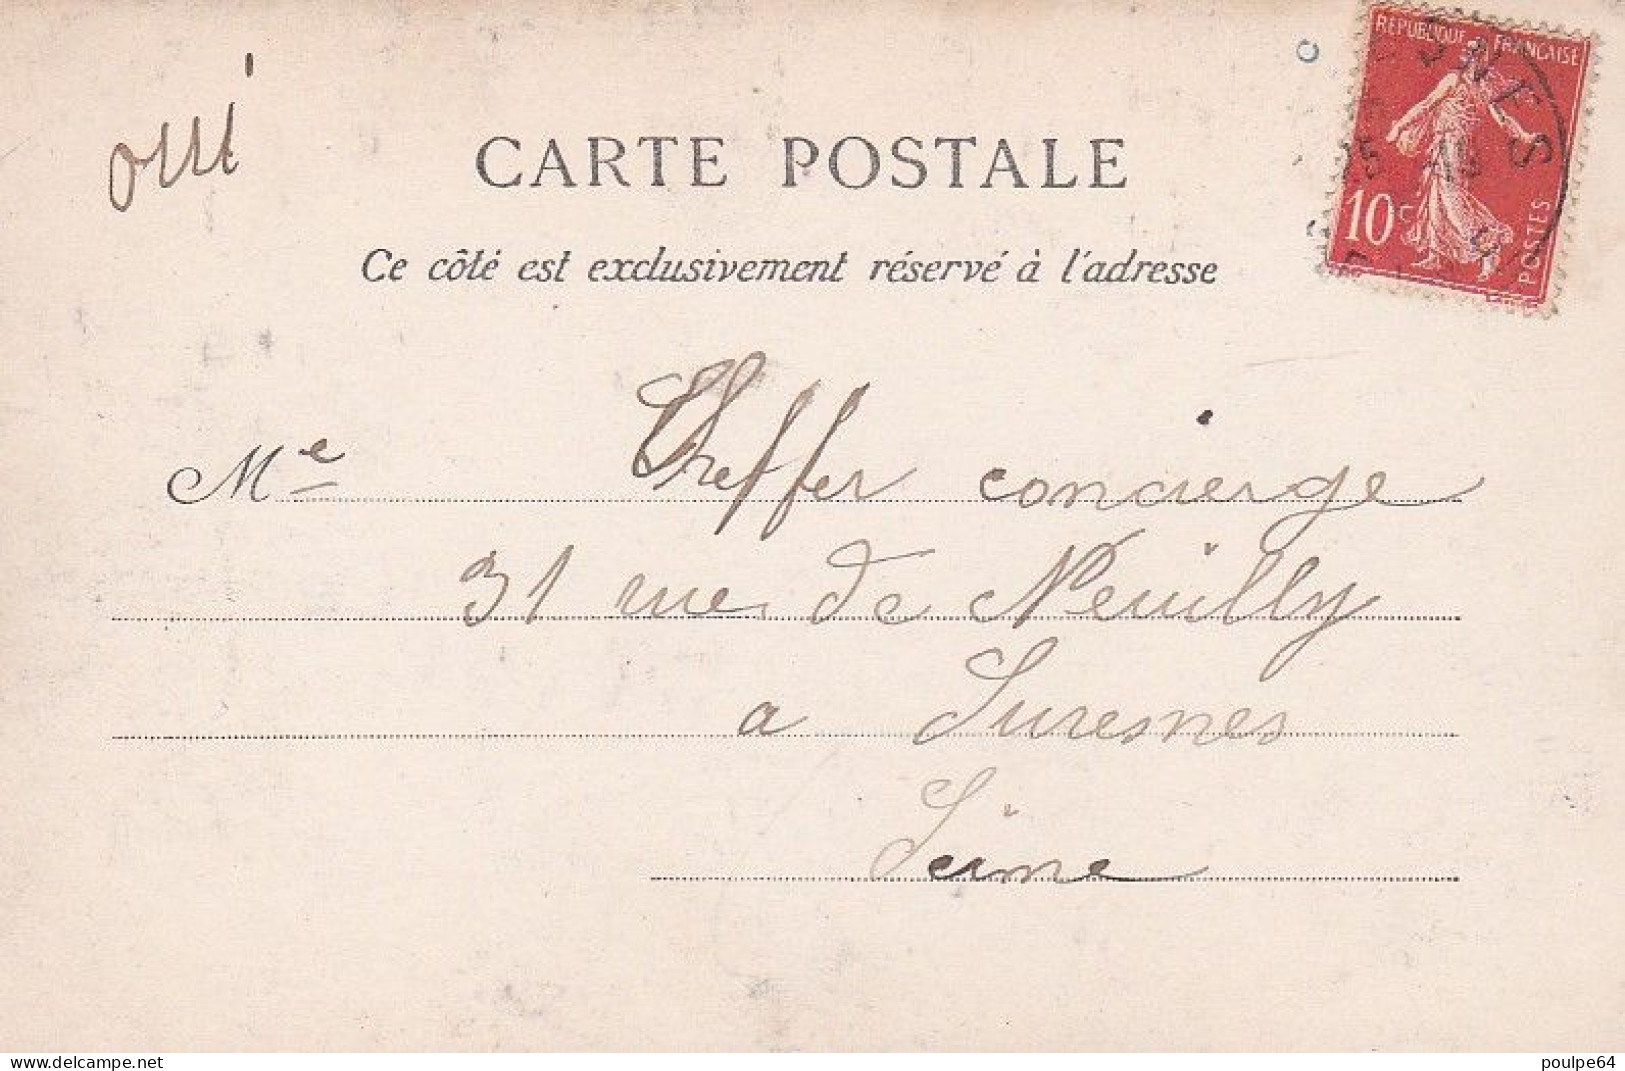 oui
CARTE POSTALE
Ce côté est exclusivement réservé à l'adresse
RÉPUBLIQUE FRANÇAISE
10c
POSTES
Me Scheffer concierge
31 rue de Neuilly
a Suresnes
Seine
www.delcampe.net
poulpe64